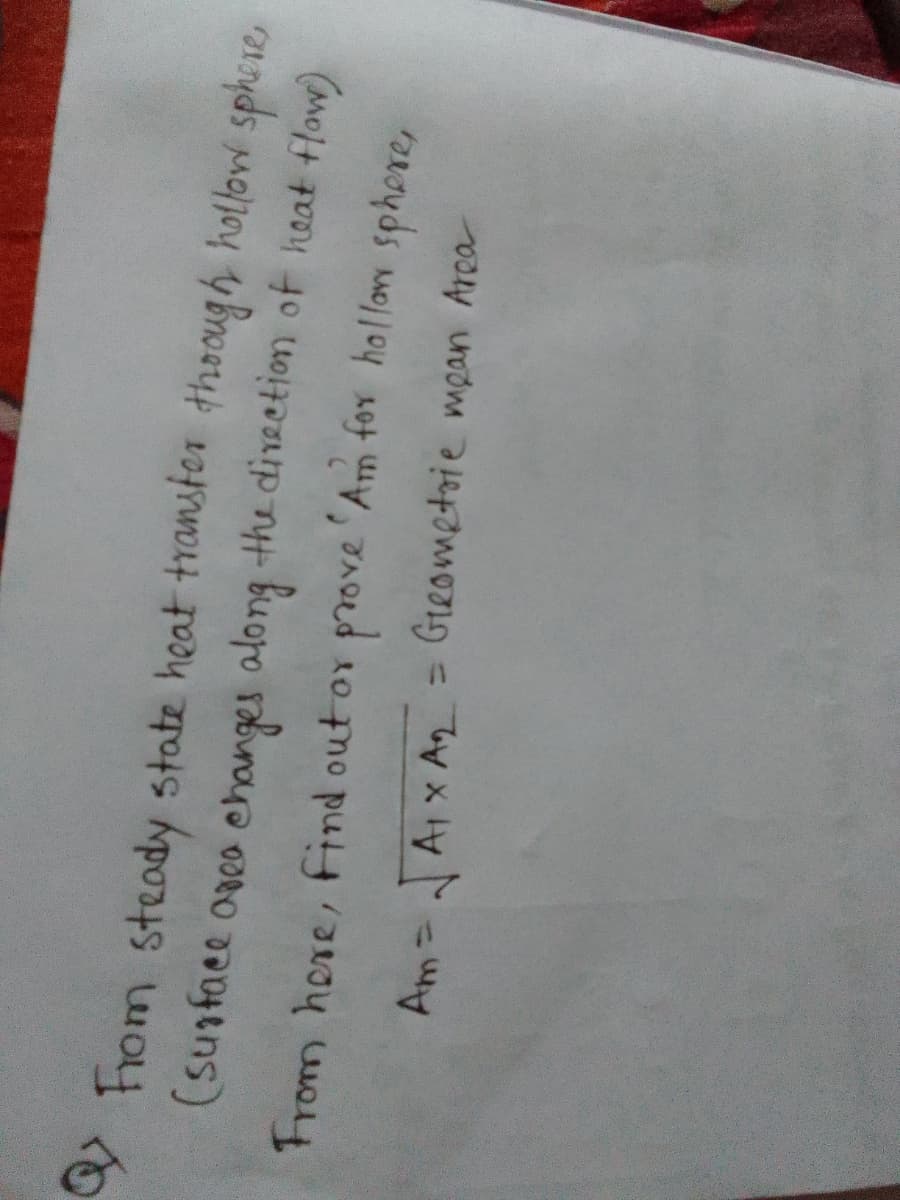 Q> From steady state heat transfer through hollow sphere,
(surface area changes along the direction of heat flow)
From here, find out or prove 'Am' for hollow sphere,
Am = √A1 x A2 = Geometric mean Area